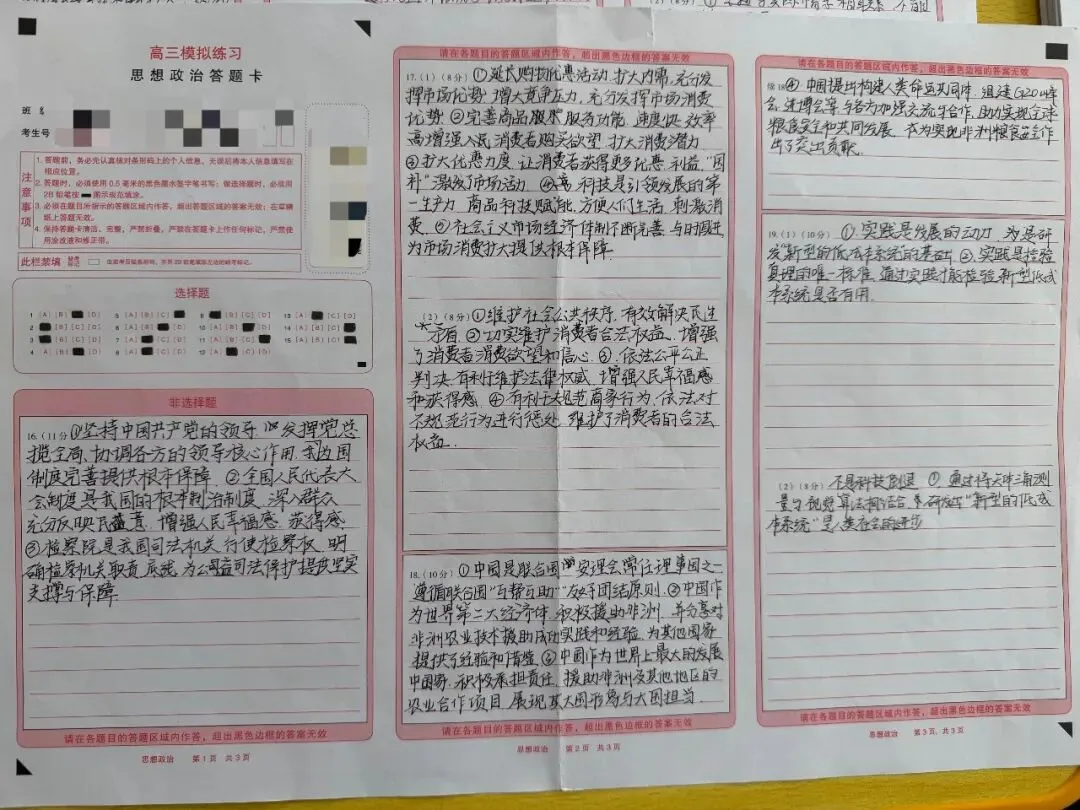 高三模拟练习
思想政治答题卡
班
考生号
注意事项
1. 答题前，务必先认真核对条形码上的个人信息，无误后将本人信息填写在
相应位置。
2. 答题时，必须使用 0.5 毫米的黑色墨水签字笔书写；做选择题时，必须用
2B 铅笔按 图示规范填涂。
3. 必须在题目所指示的答题区域内作答，超出答题区域的答案无效；在草稿
纸上答题无效。
4. 保持答题卡清洁、完整，严禁折叠，严禁在答题卡上作任何标记，严禁使
用涂改液和修正带。
此栏禁填
选择题
非选择题
16.（11分）①坚持中国共产党的领导 发挥党总
揽全局、协调各方的领导核心作用，为我国
制度完善提供根本保障 ②全国人民代表大
会制度是我国的根本制度，深入群众
充分反映民意，增强人民幸福感、获得感
③检察院是我国司法机关 行使检察权 明
确检察机关职责 为公益司法保护提供坚实
支撑与保障
请在各题目的答题区域内作答，超出黑色边框的答案无效
思想政治 第1页 共3页
请在各题目的答题区域内作答，超出黑色边框的答案无效
17.（1）（8分）①延长购物优惠活动，扩大内需，充分发
挥市场优势 增大竞争压力，充分发挥市场消费
优势 ②完善商品服务功能 速度快 效率
高 增强人民消费者购买欲望 扩大消费潜力
③扩大优惠力度 让消费者获得更多优惠 利益，"国
补"激发了市场活力 ④ 科技是引领发展的第
一生产力 商品科技赋能，方便人们生活，刺激消
费 ⑤社会主义市场经济体制不断完善 与时俱进
为市场消费扩大提供根本保障
（2）（8分）①维护社会公共秩序，有效解决民生
矛盾 ②切实维护消费者合法权益，增强
了消费者消费欲望和信心 ③依法公平公正
判决 有利于维护法律权威 增强人民幸福感
和获得感 ④有利于规范商家行为，依法对
不规范行为进行惩处 维护了消费者的合法
权益
18.（10分）①中国是联合国安理会常任理事国之一
遵循联合国"互帮互助"友好团结原则 ②中国作
为世界第二大经济体，积极援助非洲，并分享对
非洲农业技术援助成功实践和经验，为其他国家
提供了经验和借鉴 ③中国作为世界上最大的发展
中国家，积极承担责任，援助非洲及其他地区的
农业合作项目，展现其大国形象与大国担当
请在各题目的答题区域内作答，超出黑色边框的答案无效
思想政治 第2页 共3页
请在各题目的答题区域内作答，超出黑色边框的答案无效
续18 ④中国提出构建人类命运共同体，组建G20峰
会，进博会等，与各方加强交流与合作，助力实现全球
粮食安全和共同发展，为实现非洲粮食安全作
出了突出贡献
19.（1）（10分）①实践是发展的动力，为是研
发新型的低成本系统的基础 ②实践是检验
真理的唯一标准，通过实践才能检验新型低成
本系统是否有用
（2）（8分）不是科技倒退 ①通过将天球三角测
量与视觉算法相结合 研发出"新型的低成
本系统"是人类社会的进步
请在各题目的答题区域内作答，超出黑色边框的答案无效
思想政治 第3页 共3页